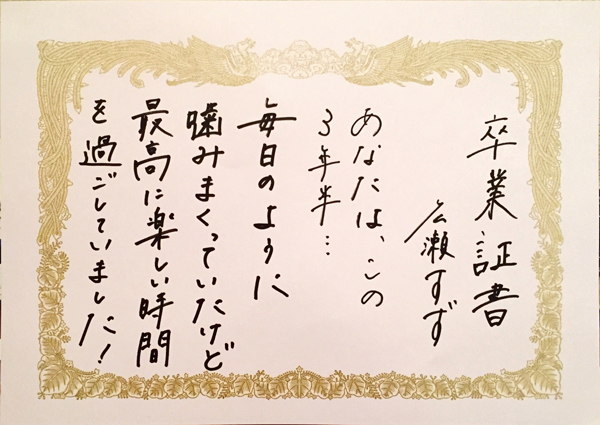 卒業証書
広瀬すず
あなたは、この
3年半…
毎日のように
噛みまくっていたけど
最高に楽しい時間
を過ごしていました！